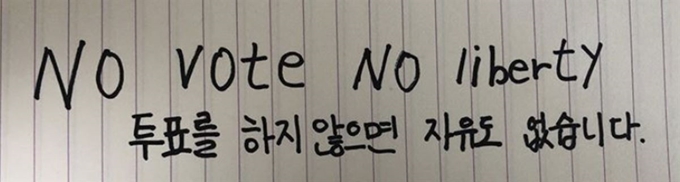 No vote No liberty
투표를 하지 않으면 자유도 없습니다.